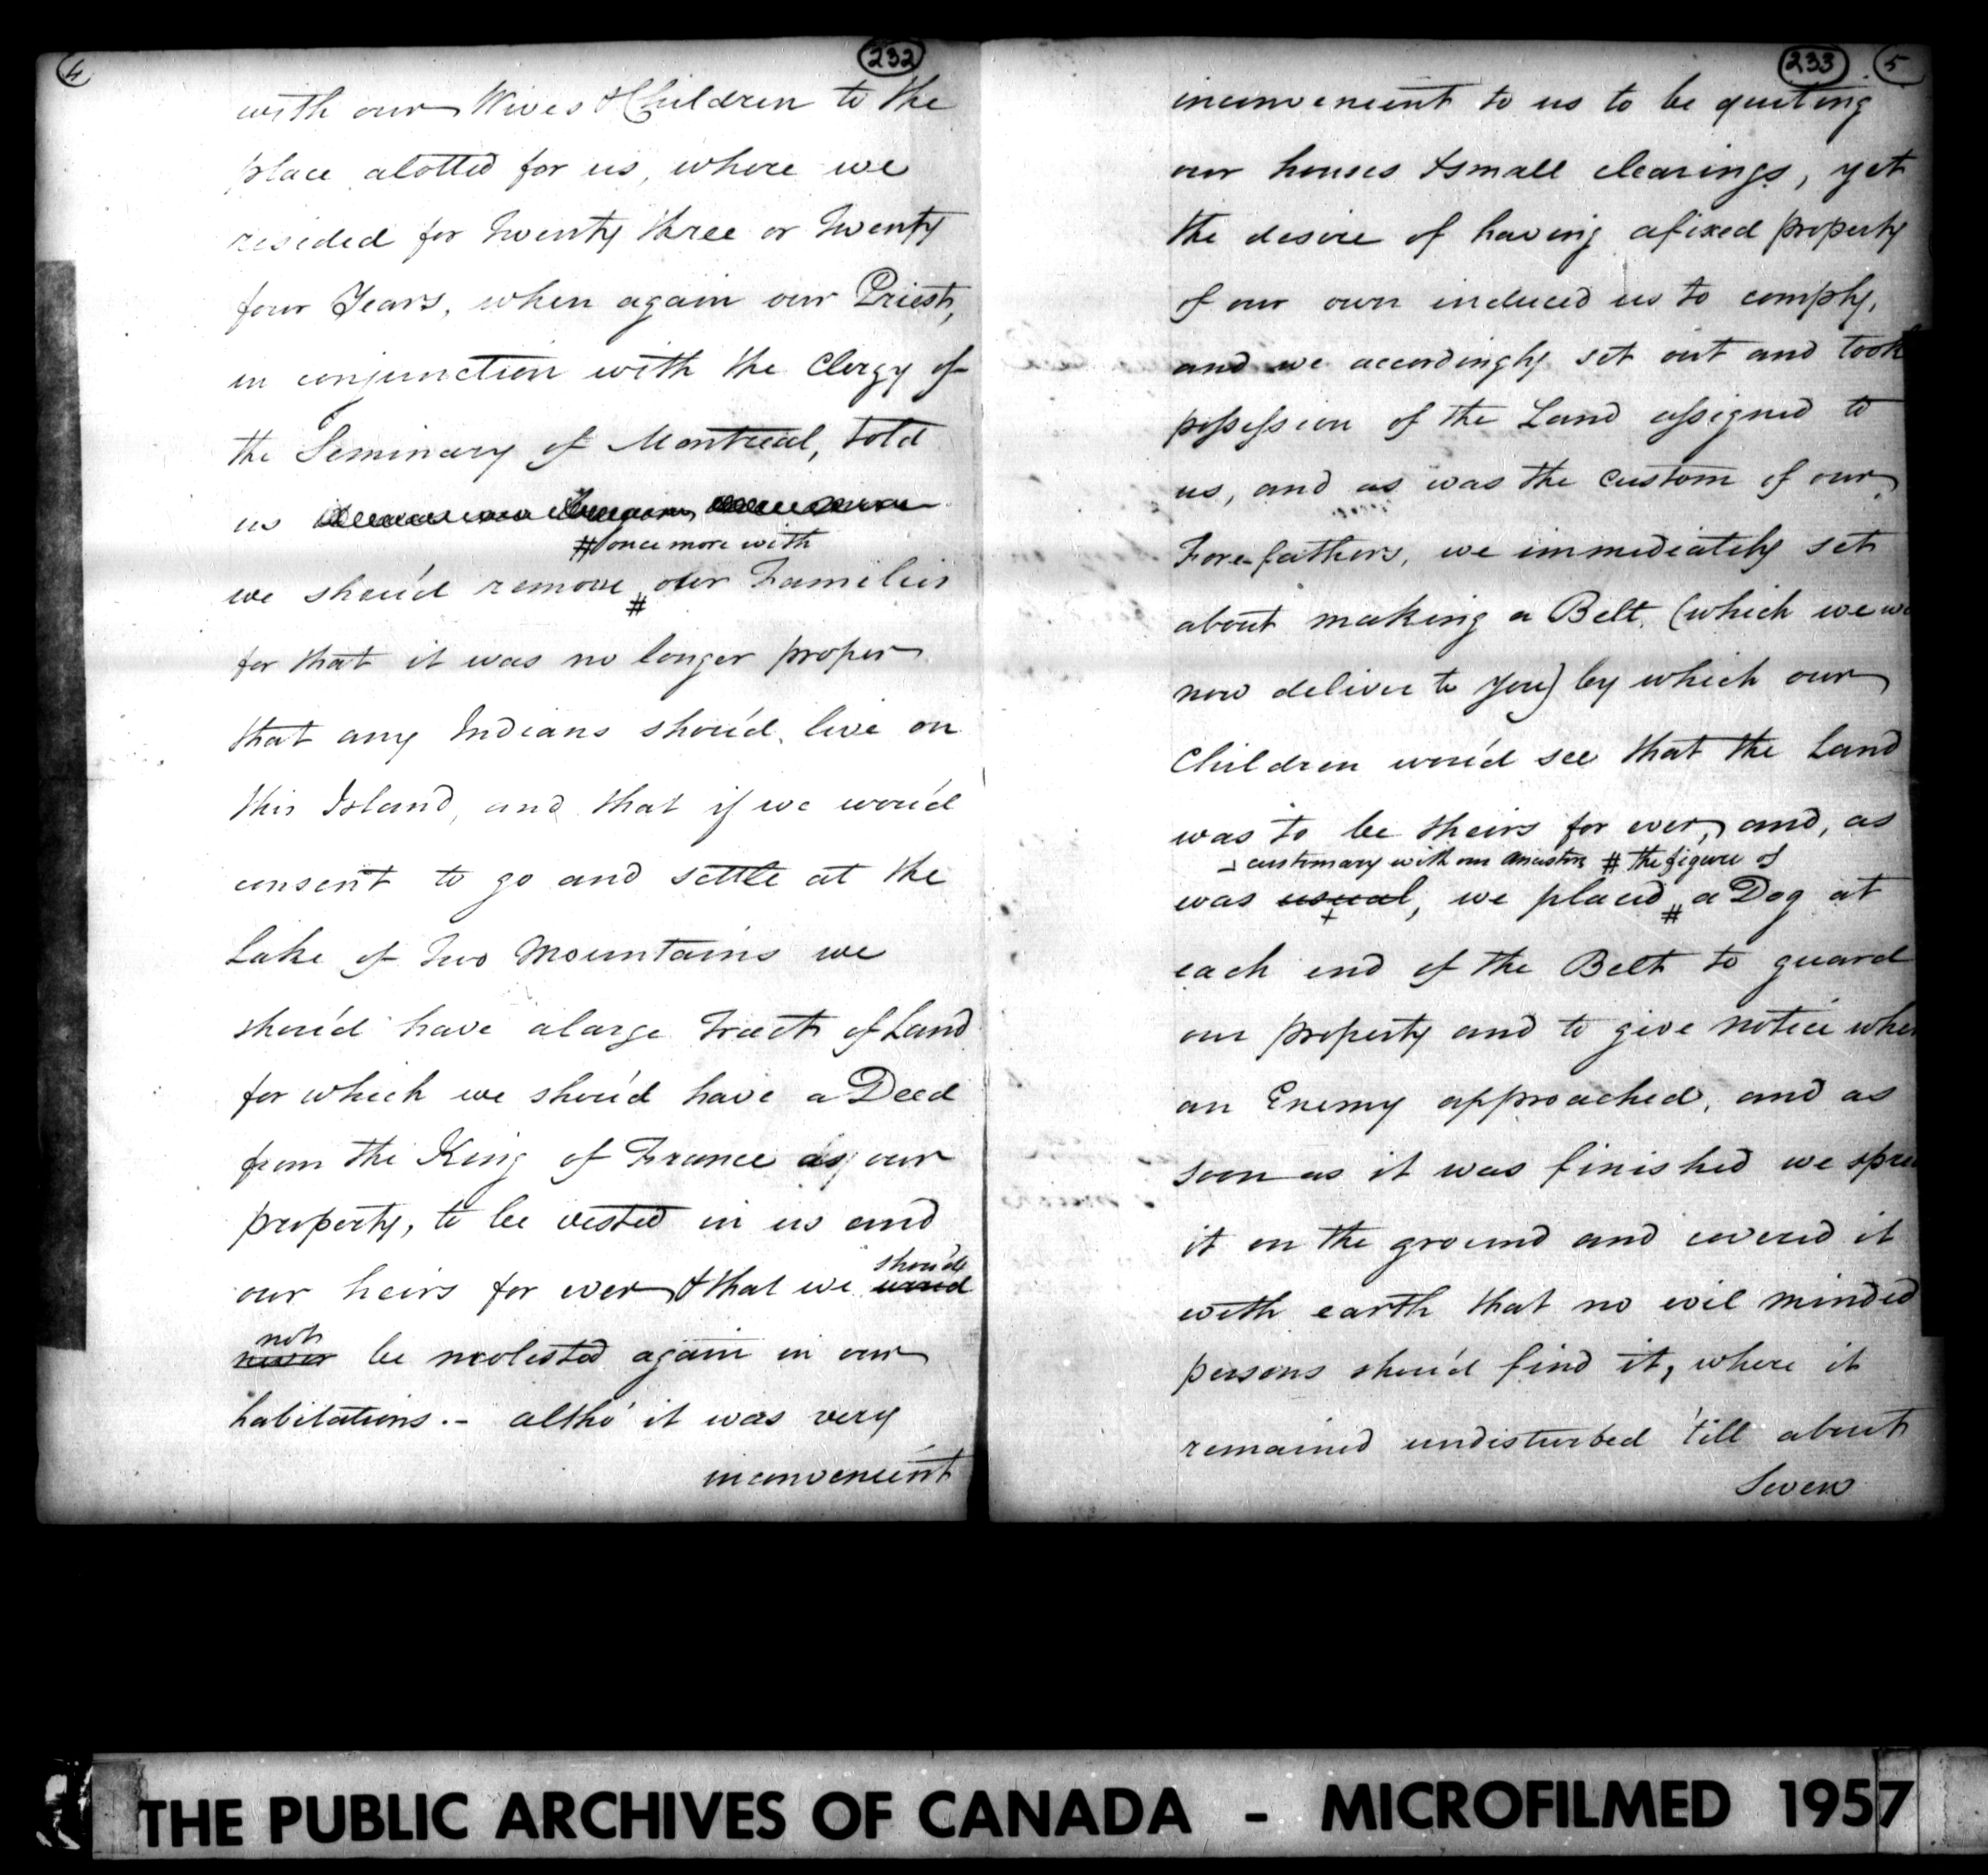 4
232
with our Wives & Children to the
place alotted for us, where we
resided for Twenty three or Twenty
four Years, when again our Priest,
in conjunction with the Clergy of
the Seminary of Montreal, told
us
# once more with
we shou'd remove # our Families
for that it was no longer proper
that any Indians shou'd live on
this Island, and that if we wou'd
consent to go and settle at the
Lake of Two Mountains we
shou'd have a large Tract of Land
for which we shou'd have a Deed
from the King of France as our
property, to be vested in us and
our heirs for ever, & that we wou'd
shou'd
never be molested again in our
not
habitations.- altho' it was very
inconvenient
233 5
inconvenient to us to be quiting
our houses & small clearings, yet
the desire of having a fixed property
of our own induced us to comply,
and we accordingly set out and took
possession of the Land assigned to
us, and as was the custom of our
Fore-fathers, we immediately set
about making a Belt, (which we
now deliver to you) by which our
Children wou'd see that the Land
was to be theirs for ever, and, as
customary with our Ancestors # the figure of
was usual, we placed # a Dog at
each end of the Belt to guard
our property and to give notice when
an Enemy approached, and as
soon as it was finished we
it on the ground and covered it
with earth that no evil minded
persons shou'd find it, where it
remained undisturbed 'till about
Seven
THE PUBLIC ARCHIVES OF CANADA - MICROFILMED 1957